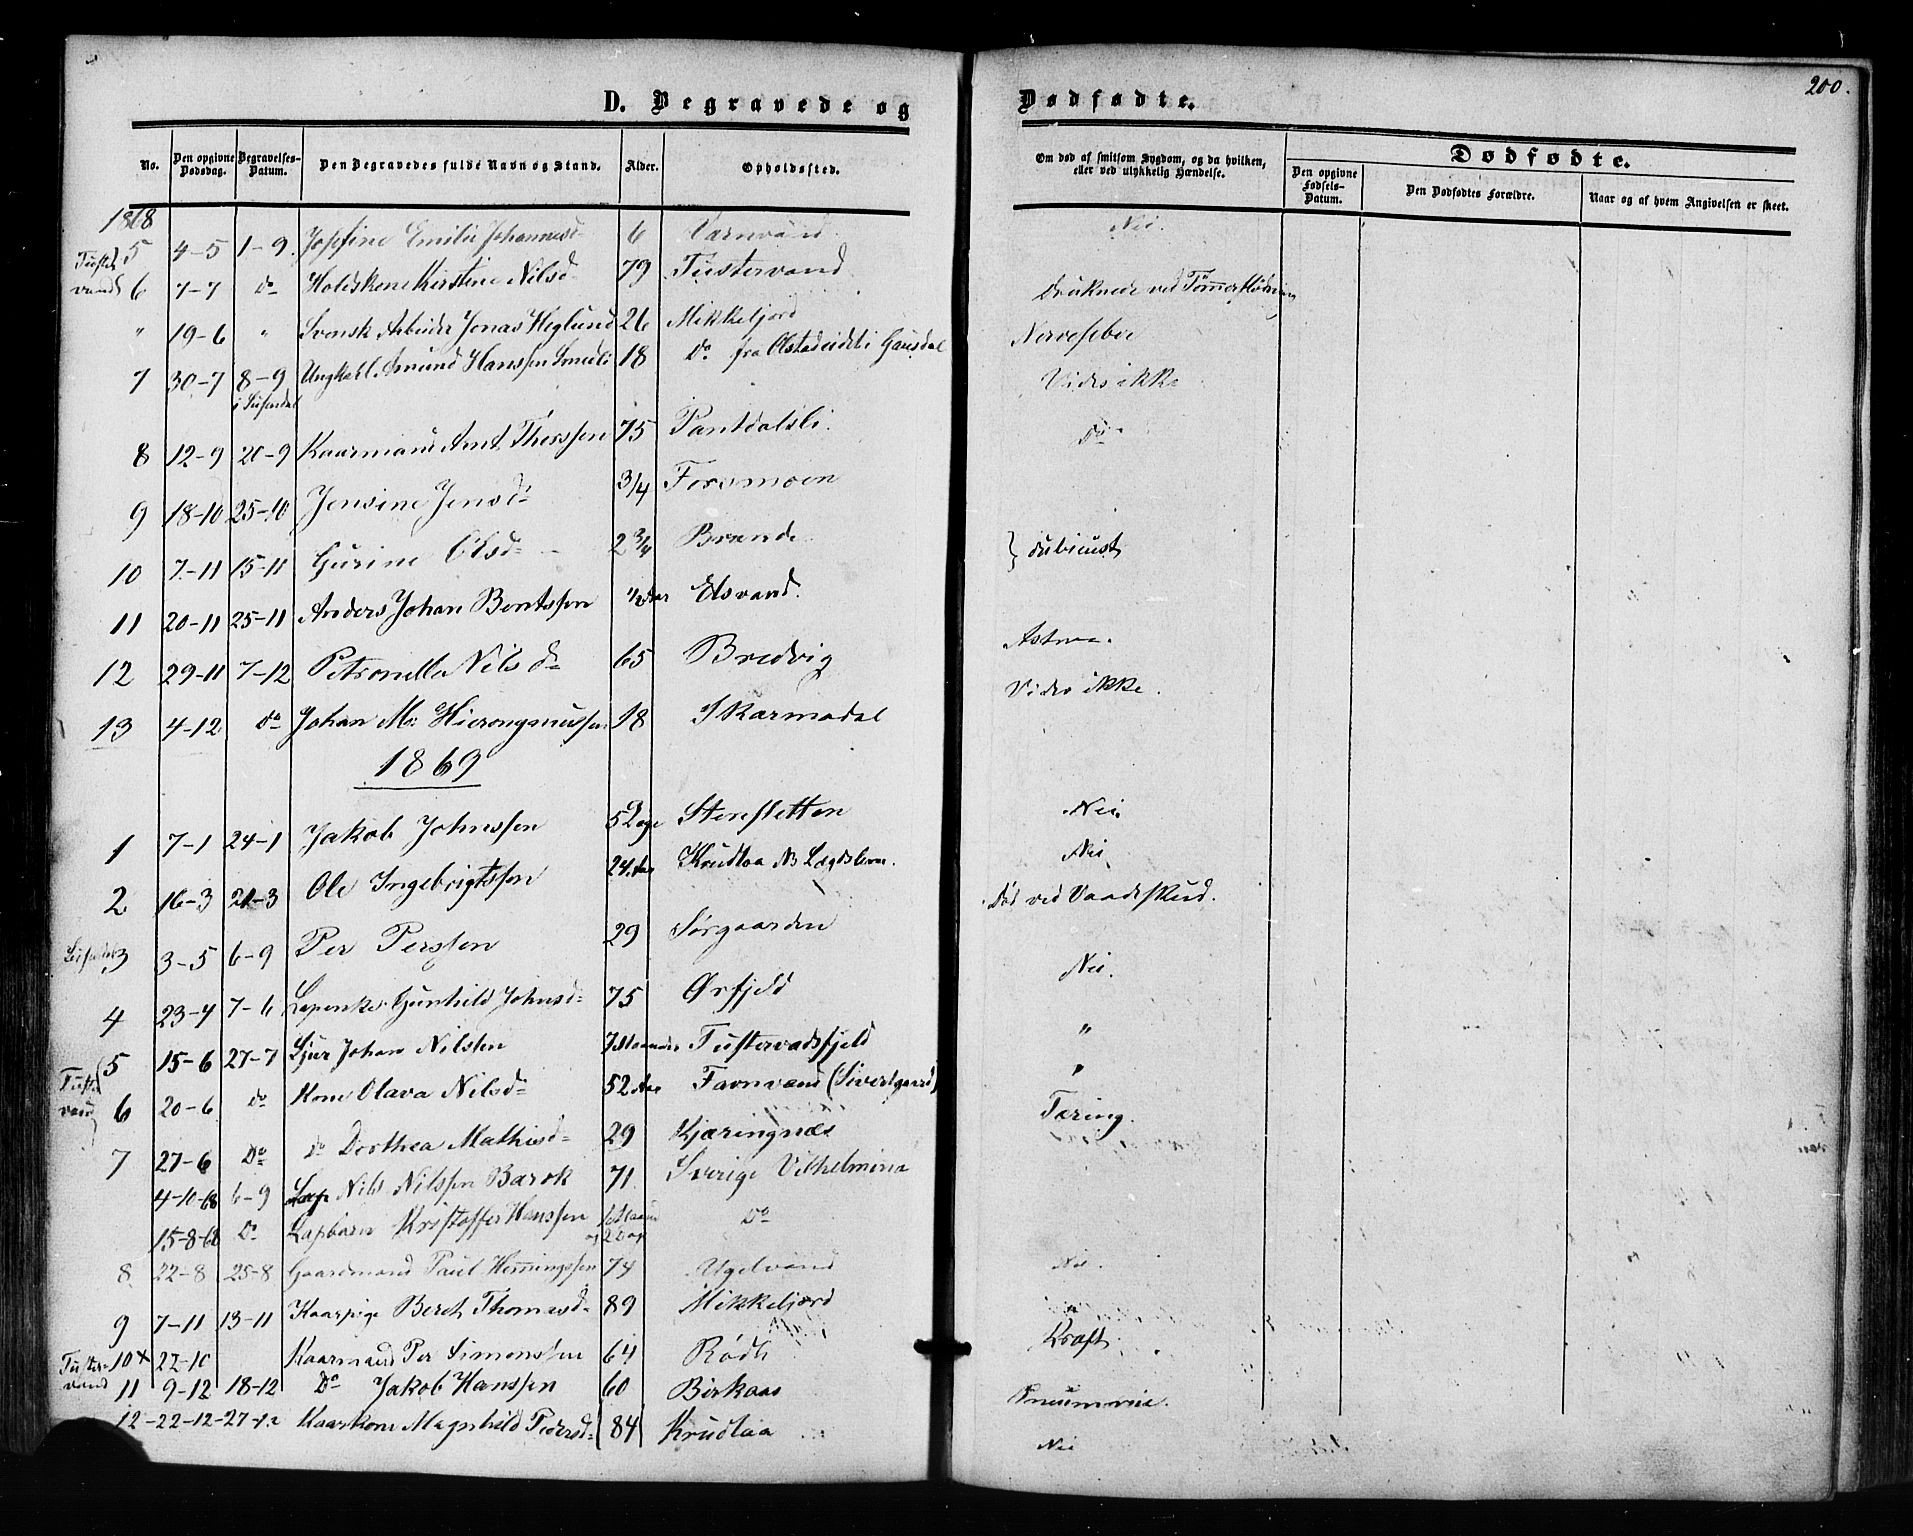 200.
D. Begravede og Dødfødte.
No. Den opgivne Dødsdag. Begravelses-Datum. Den Begravedes fulde Navn og Stand. Alder. Opholdssted. Om død af smitsom Sygdom, og da hvilken, eller ved ulykkelig Hændelse. Dødfødte. Den opgivne Fødsels-Datum. Den Dødfødtes Forældre. Naar og af hvem Angivelsen er skeet.
1868
5 4-5 1-9. Josefine Emilie Johannesd- 6 Nei.
6 7-7 do Kirstine Nilsd- 79 Tustervand Druknede ved
" 19-6 " Svensk Arbeider Jonas Heglund 26 Mikkeljord Nervefeber
7 30-7 8-9 Ungkarl. Amund Hanssen 18 Do fra i Gausdal Vides ikke
8 12-9 20-9 Kaarmand Arnt Thorssen 75 Pantdalsli. Do
9 18-10 25-10 Jensine Jensd- 3/4 Forsmoen
10 7-11 15-11 Gurine Olsd- 2 3/4 Brende
11 20-11 25-11 Anders Johan Bentssen 1/2 Aar Elsvand.
12 29-11 7-12 Petronella Nilsd- 65 Bredvig Astma.
13 4-12 do Johan M: Hieronymussen 18 Skarmodal Vides ikke.
1869
1 7-1 24-1 Jakob Johnssen Stensletten Nei.
2 16-3 21-3 Ole Ingebrigtssen 24 Aar Krudtaa Nei
3 3-5 6-9 Per Perssen 29 Sørgaarden Død ved Vaadeskud.
4 23-4 7-6 Gunhild Johnsd- 75 Ørfjeld Nei.
5 15-6 27-7 Johan Nilssen Tustervadsfjeld "
Tuster
vand
6 20-6 do Kone Olava Nilsd- 52 Aar Favnvand (Sivertgaard) "
7 27-6 Do Do Dorthea Mathisd- 29 Kjæringnæs Tæring.
4-10-68 6-9 Lap Nils Nilssen Barok 71. Sverige Vilhelmina
15-8-68 Do Lapbarn Kristoffer Hanssen og 2 Dag Do
8 22-8 25-8 Gaardmand Paul Henningssen 74 Ugelvand Nei.
9 7-11 13-11 Kaarpige Beret Thomasd- 89 Mikkeljord "
Tuster-
vand
10+ 27-10 Kaarmand Per Simonssen 64 Rødli Kræft.
11 9-12 18-12 Do Jakob Hanssen 60 Birkaas Pneumonie.
12-22-12-27-12 Kaarkone Magnhild Pedersd- 84 Krudtaa Nei